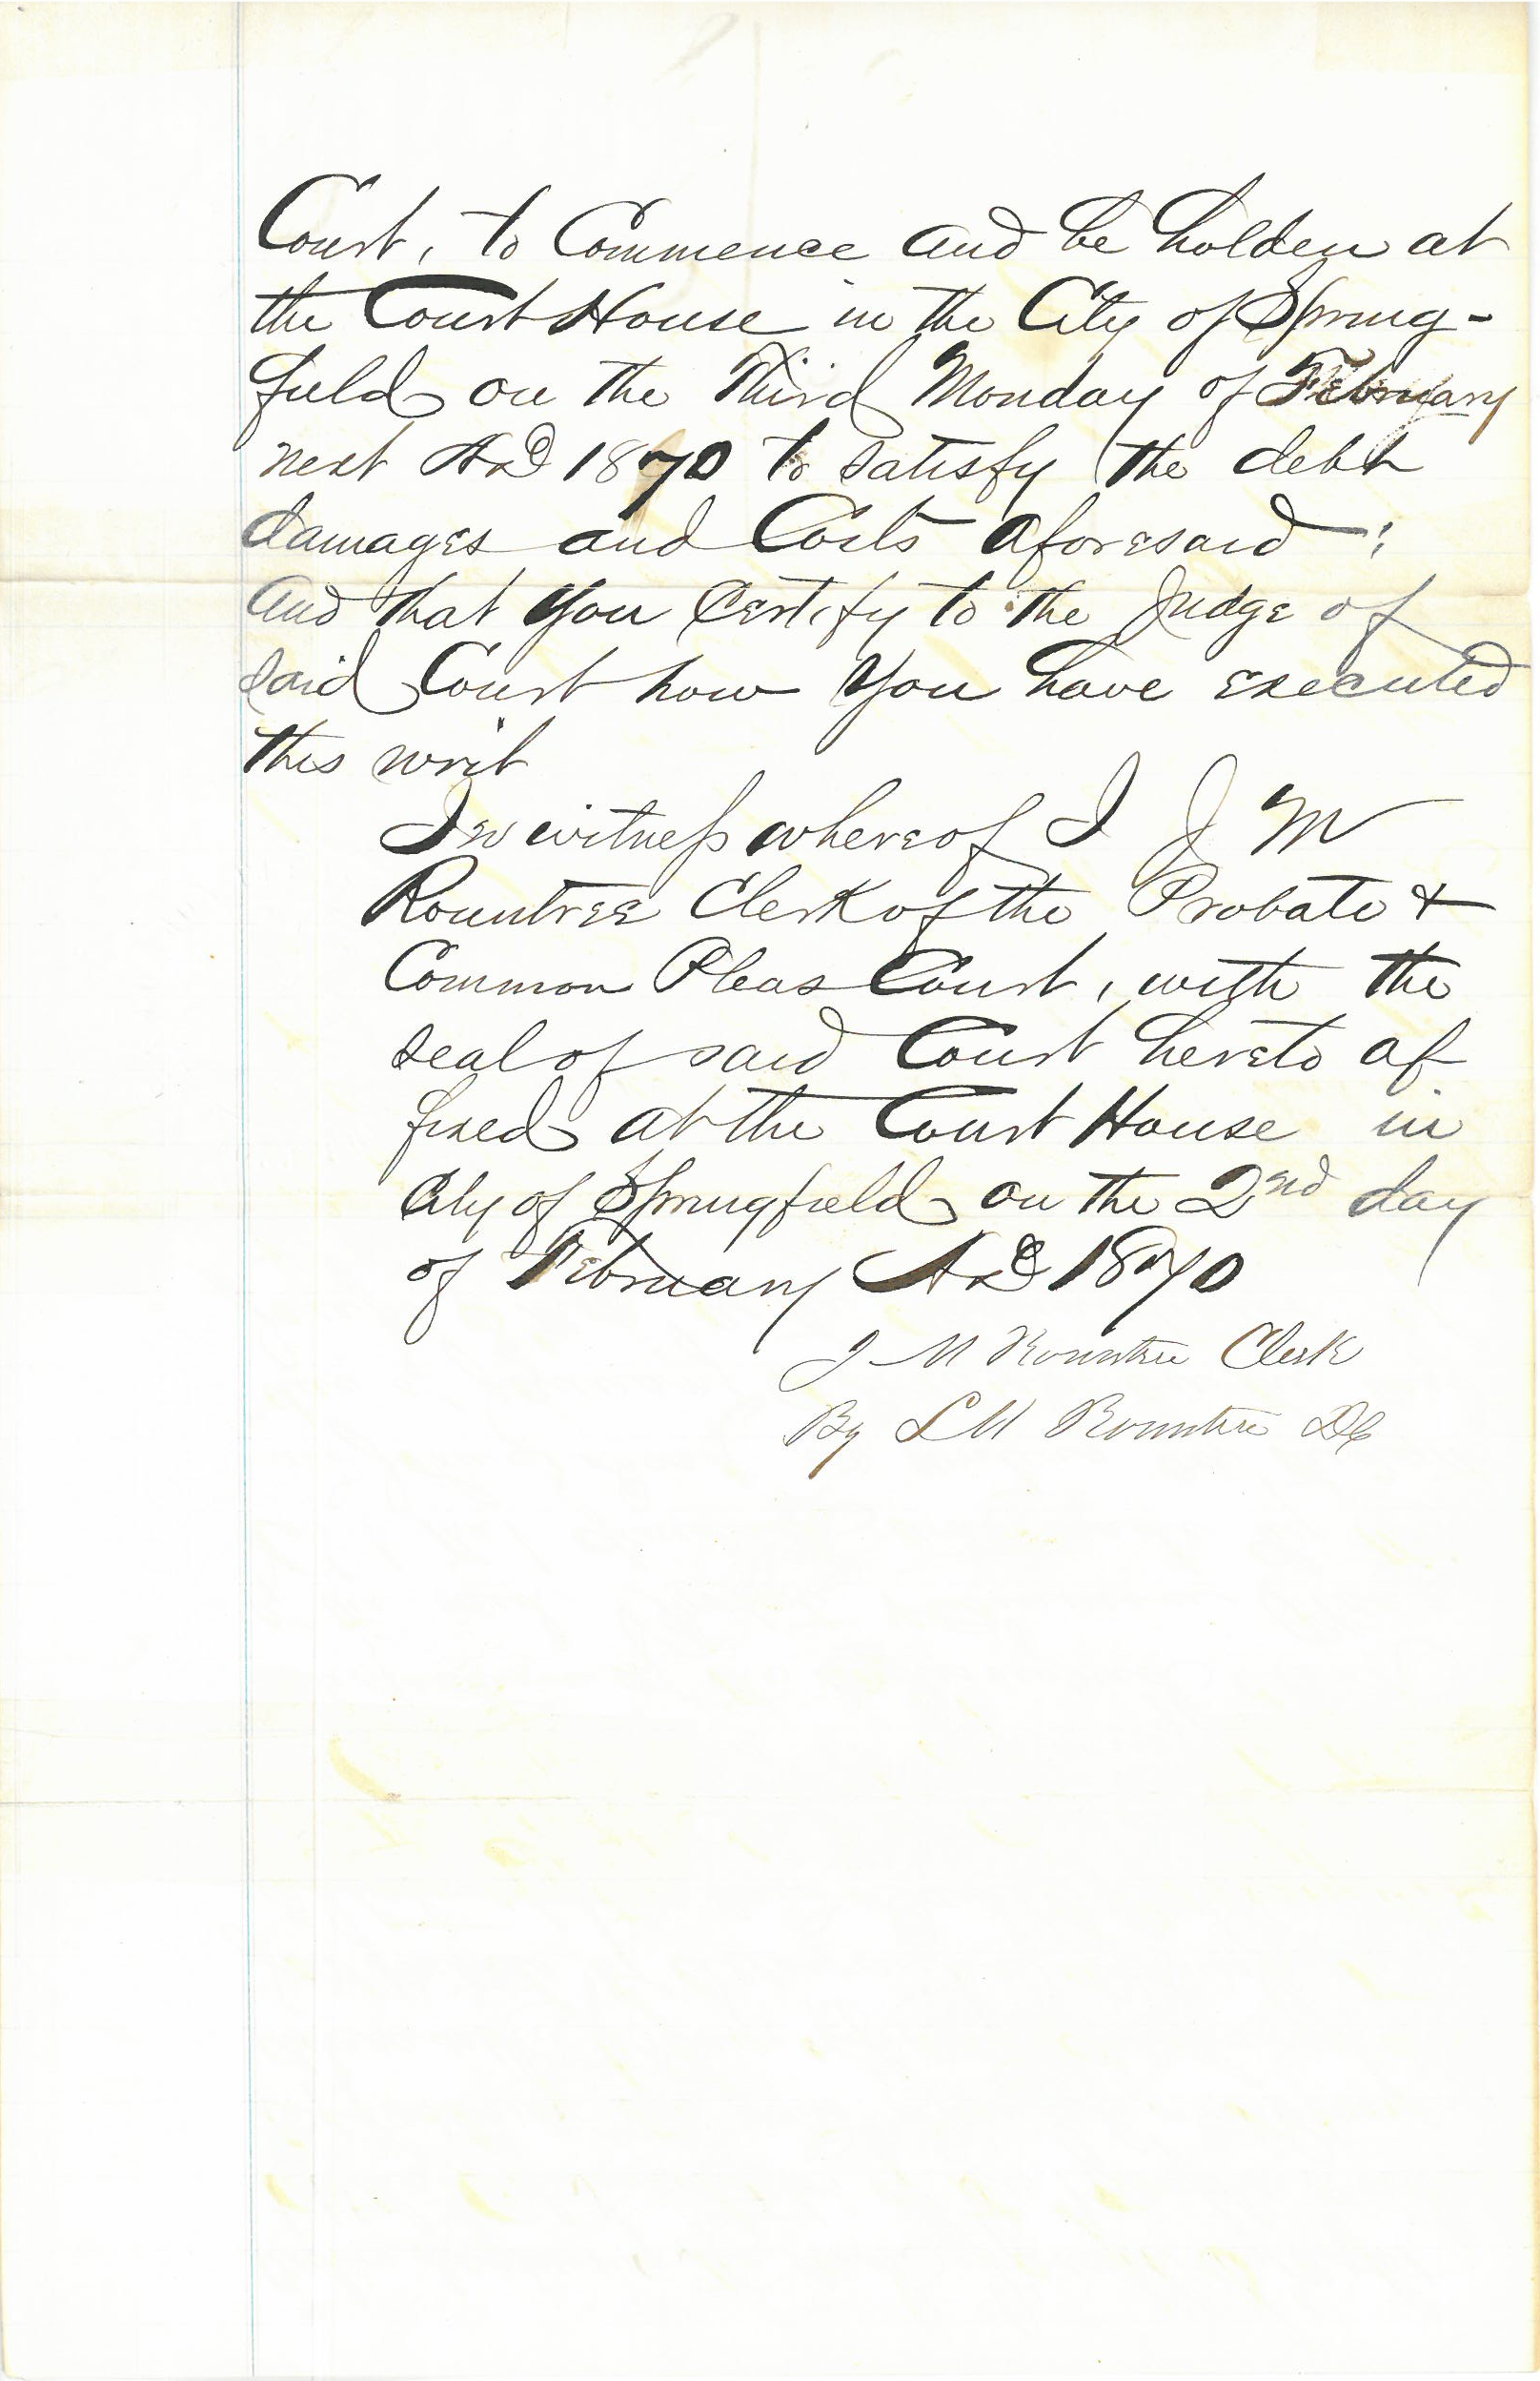 Court, to Commence and be holden at
the Court House in the City of Spring-
field on the Third Monday of February
next AD 1870 to satisfy the debt
damages and Costs aforesaid;
And that you Certify to the Judge of
said Court how you have executed
this writ
In witness whereof I J M
Rountree Clerk of the Probate &
Common Pleas Court, with the
seal of said Court hereto af
fixed at the Court House in
City of Springfield on the 2nd day
of February AD 1870
J M Rountree Clerk
By L M Rountree DC